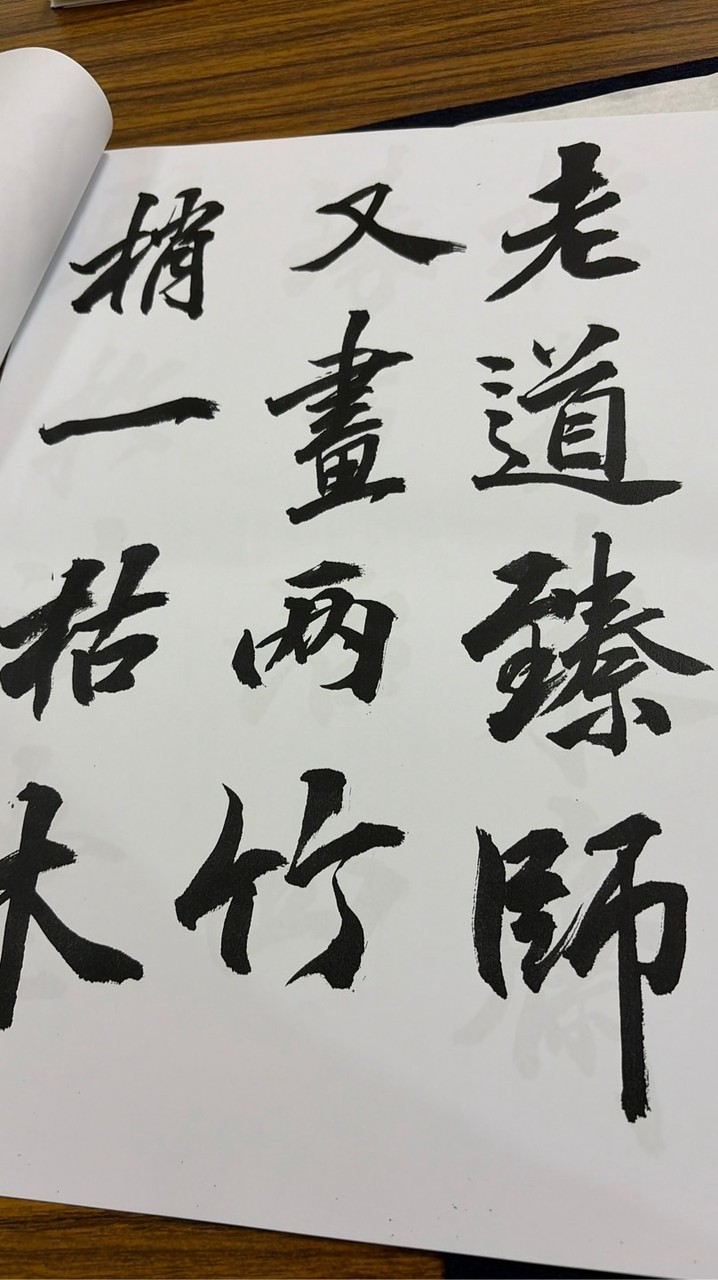 老道臻師
又畫兩竹
梢一枯木